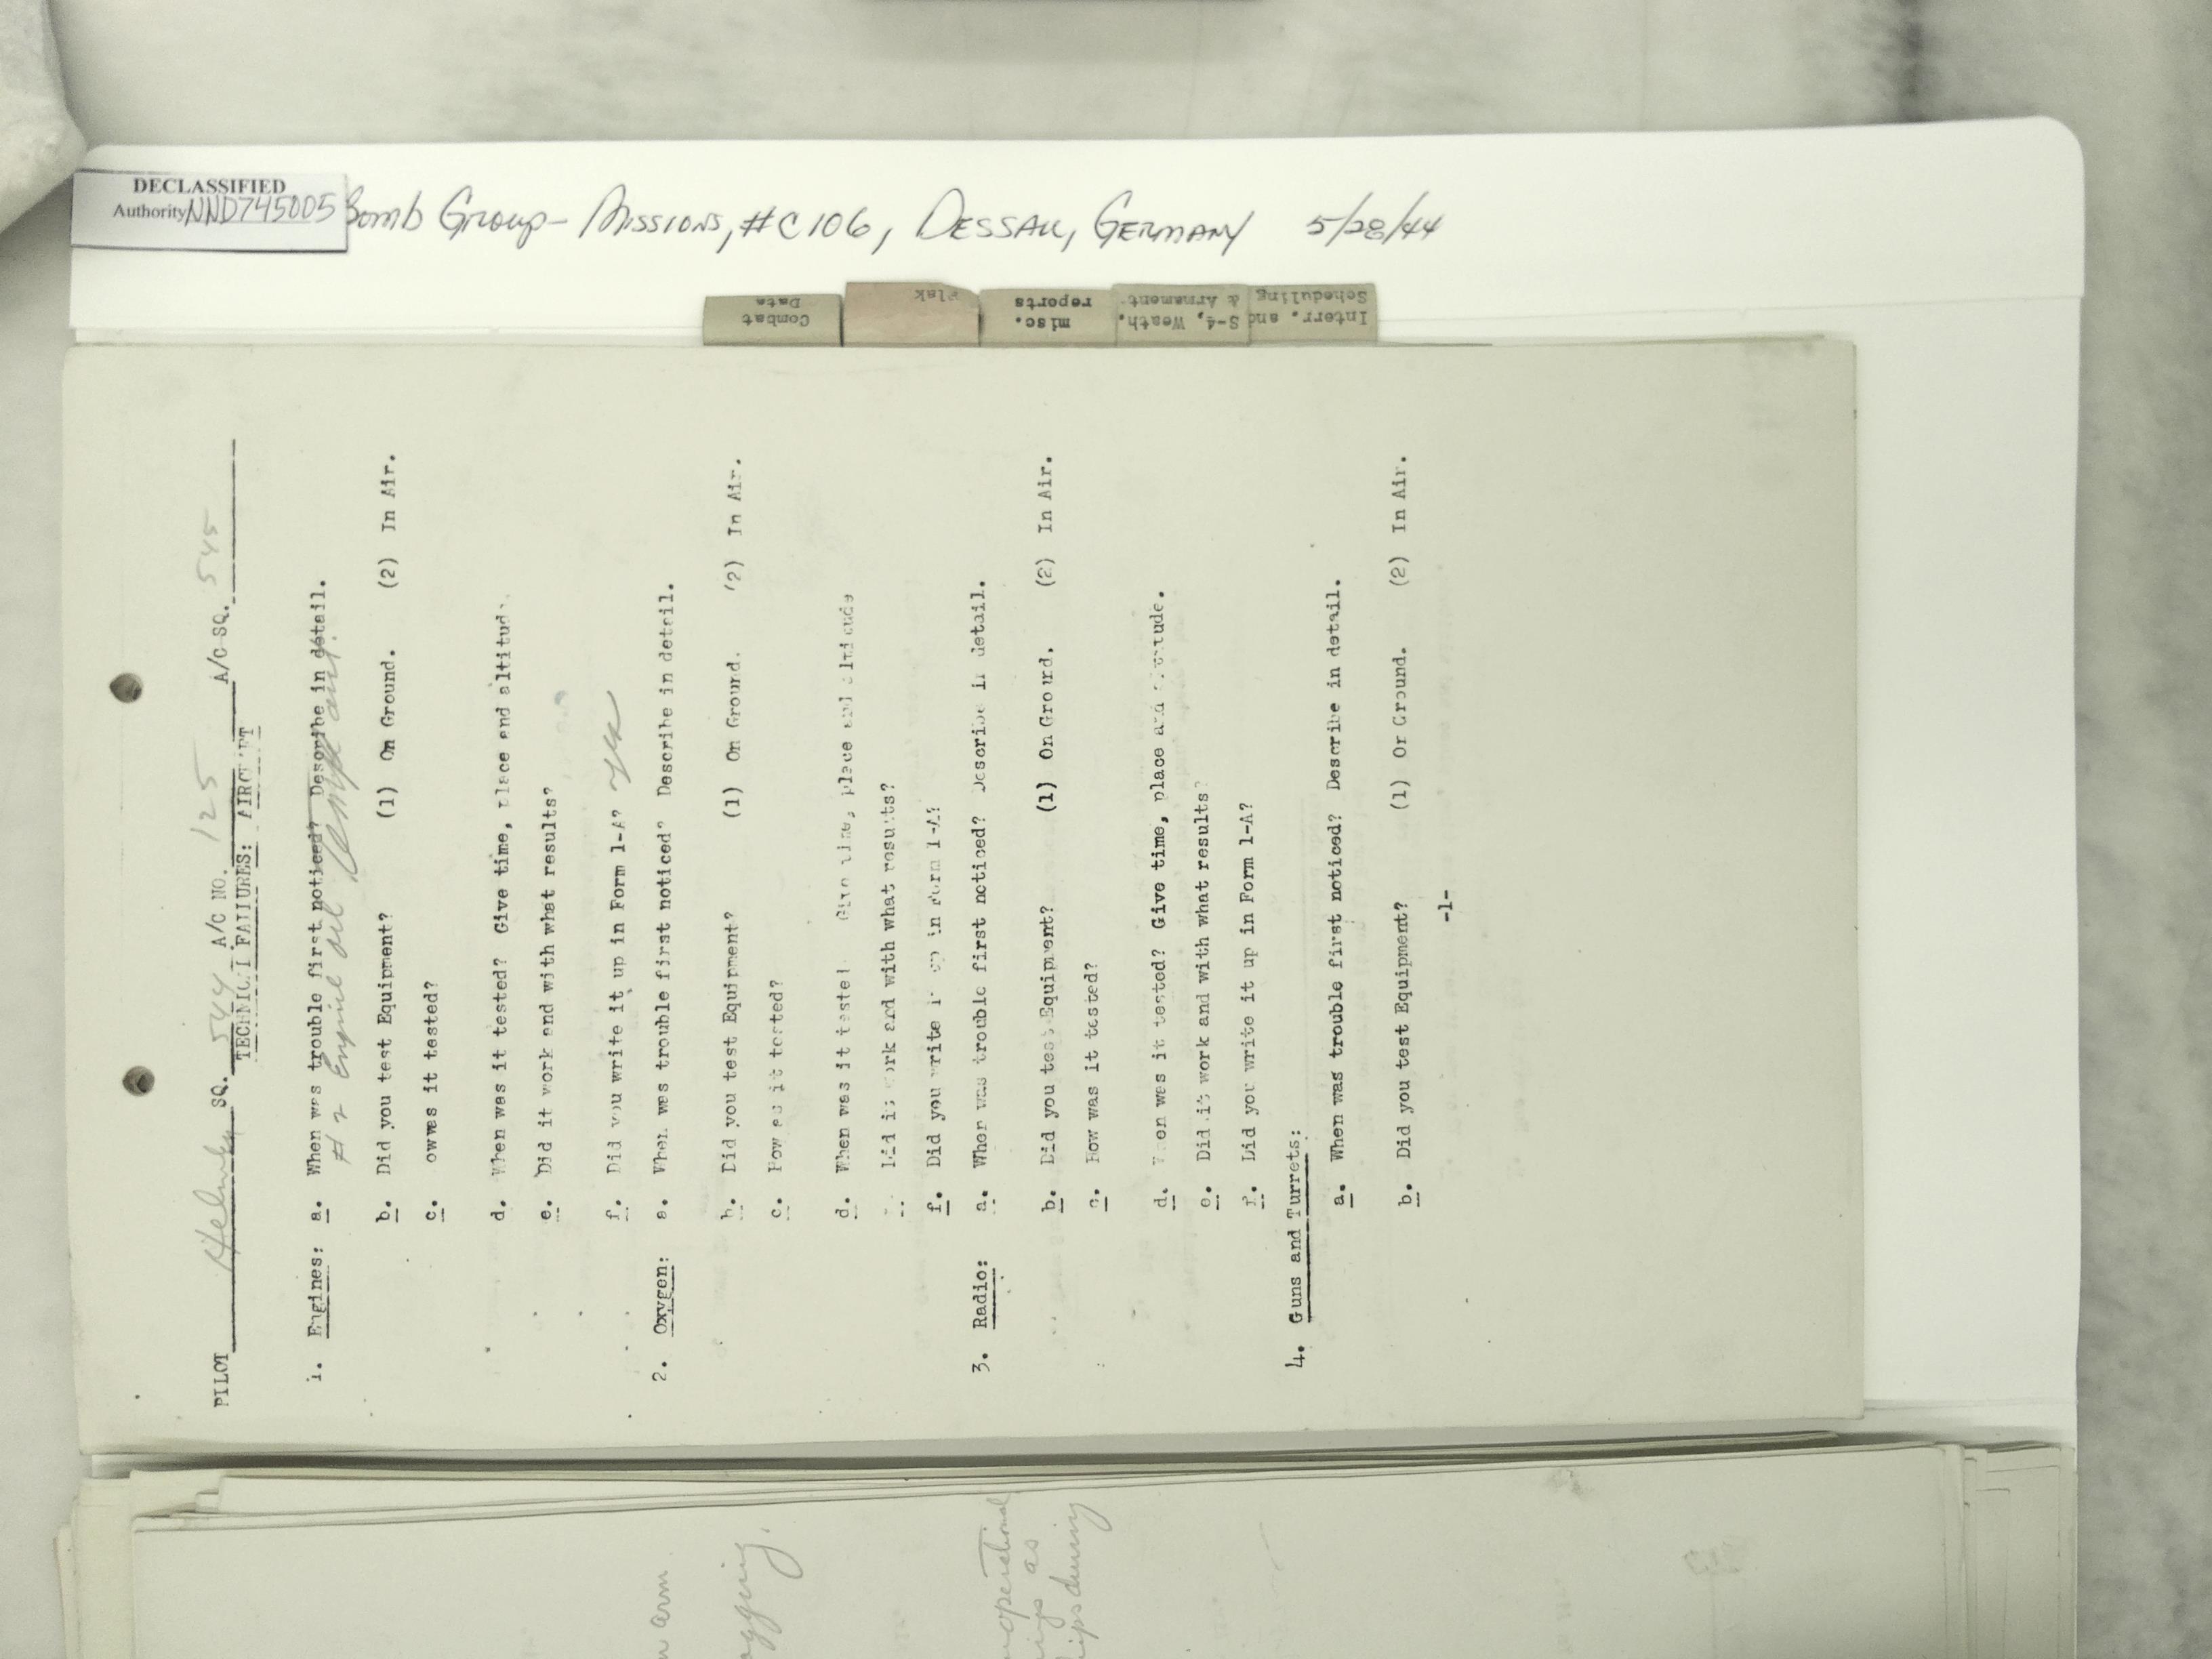 DECLASSIFIED
Authority NND745005
Bomb Group - Missions, #C106, Dessau, Germany 5/28/44
Combat Data
Flak
misc. reports
S-4, Weath. & Armament
Interr. and Scheduling
PILOT SQ. 544 A/C NO. 125 A/C SQ. 545
TECHNICAL FAILURES: AIRCRAFT
1. Engines: a. When was trouble first noticed? Describe in detail.
# 2 Engine oil temp
b. Did you test Equipment? (1) On Ground. (2) In Air.
c. owwes it tested?
d. When was it tested? Give time, place and altitude.
e. Did it work and with what results?
f. Did you write it up in Form 1-A? Yes
2. Oxygen: a. When was trouble first noticed? Describe in detail.
b. Did you test Equipment? (1) On Ground. (2) In Air.
c. How was it tested?
d. When was it tested Give time, place and altitude
Did it work and with what results?
f. Did you write it up in Form 1-A?
3. Radio: a. When was trouble first noticed? Describe in detail.
b. Did you test Equipment? (1) On Ground. (2) In Air.
c. How was it tested?
d. When was it tested? Give time, place and altitude.
e. Did it work and with what results?
f. Did you write it up in Form 1-A?
4. Guns and Turrets:
a. When was trouble first noticed? Describe in detail.
b. Did you test Equipment? (1) On Ground. (2) In Air.
-1-
arm
as
during